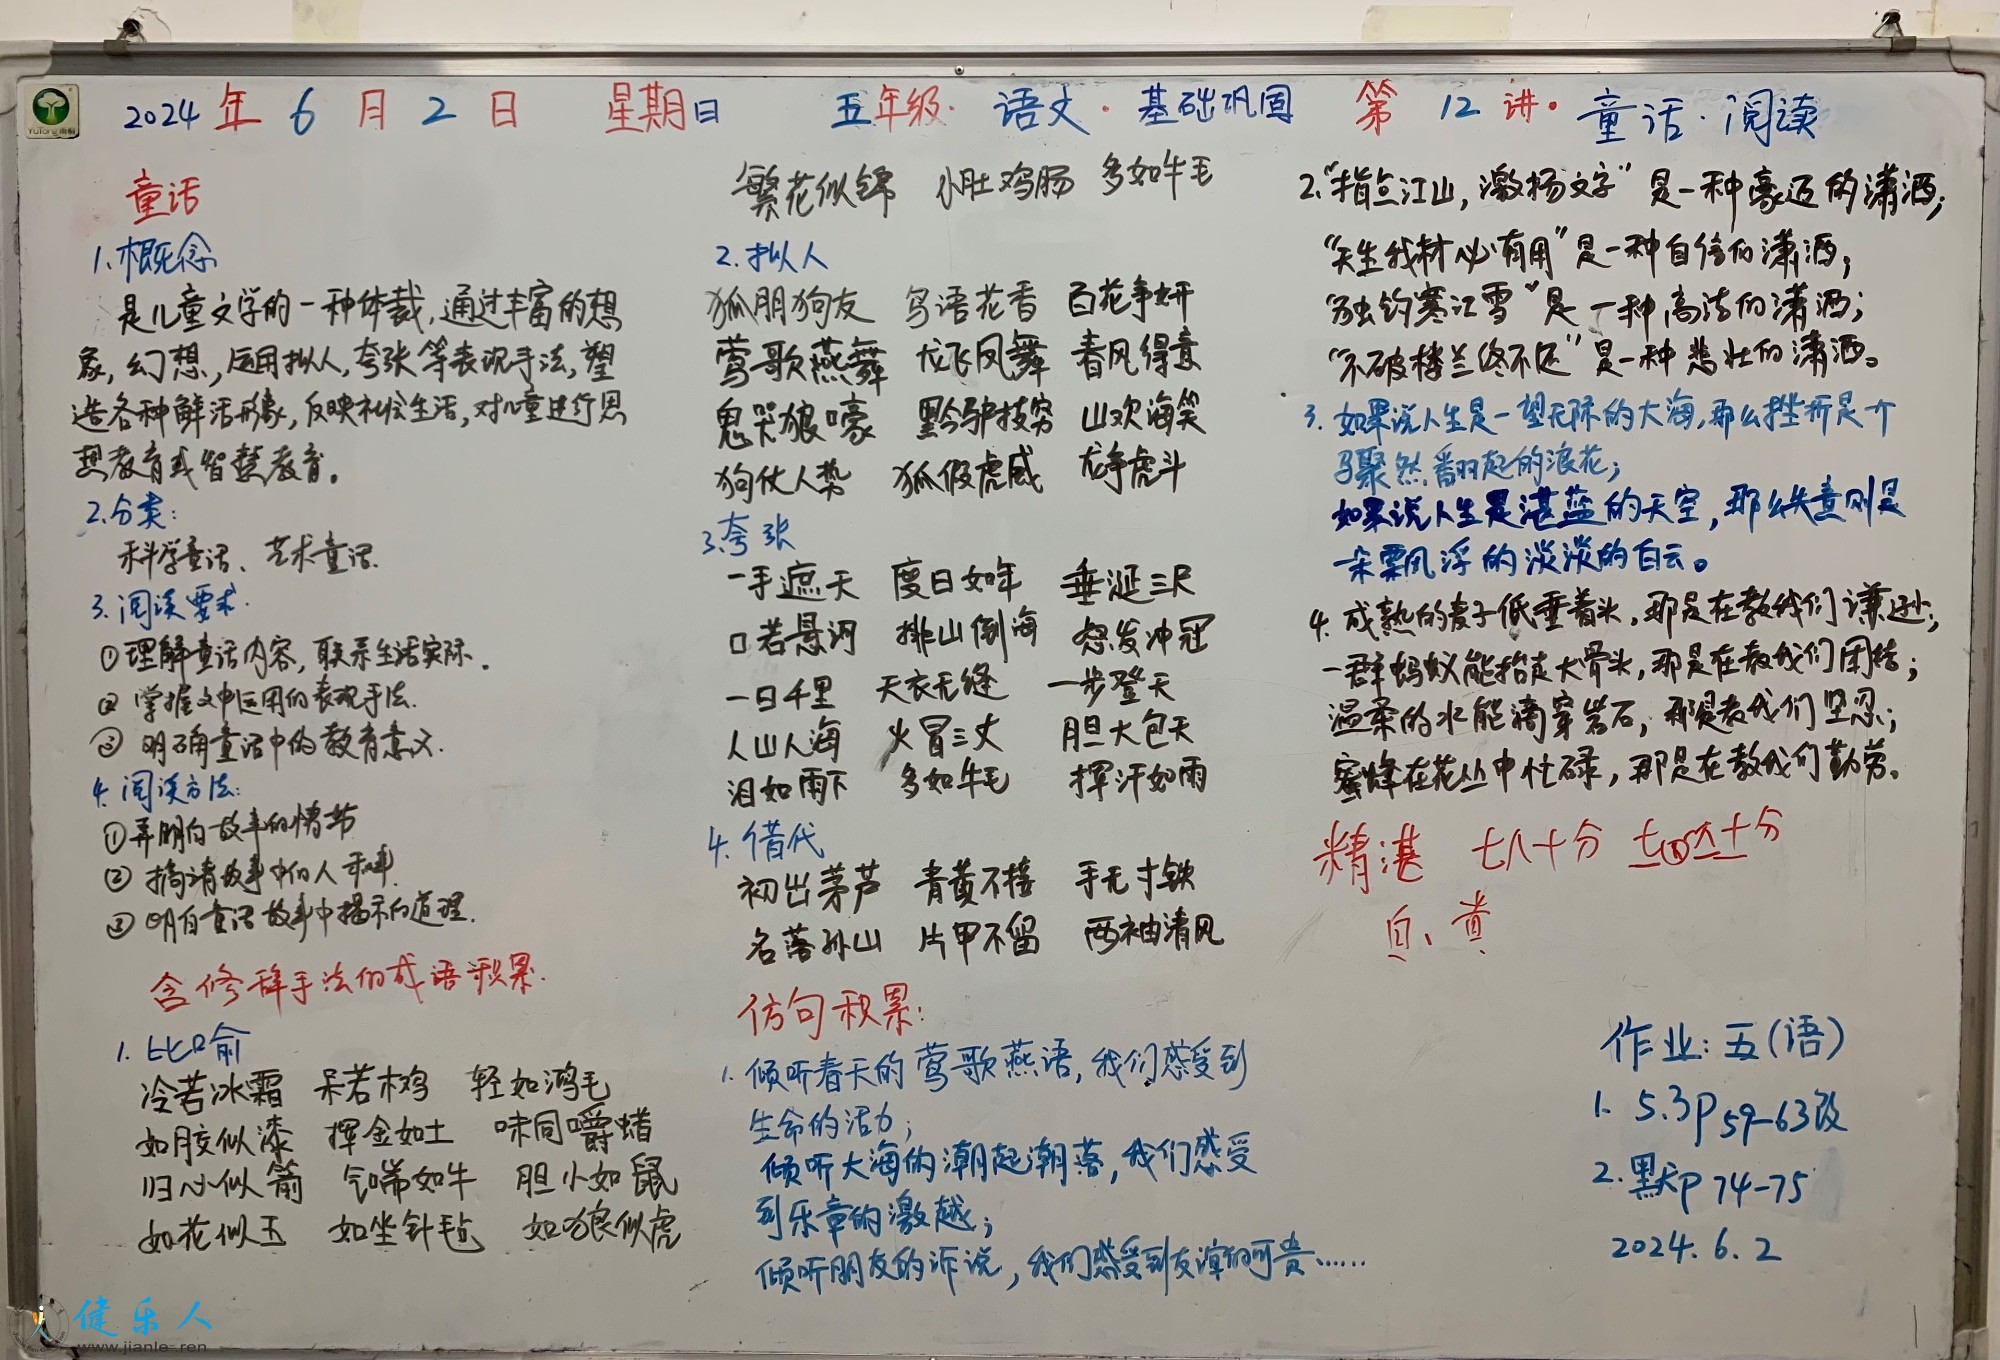 2024年6月2日 星期日 五年级·语文·基础巩固 第12讲·童话·阅读
YuTong
童话
1.概念
是儿童文学的一种体裁,通过丰富的想
象,幻想,运用拟人,夸张等表现手法,塑
造各种鲜活形象,反映社会生活,对儿童进行思
想教育或智慧教育。
2.分类:
科学童话、艺术童话.
3.阅读要求.
①理解童话内容,联系生活实际.
②掌握文中运用的表现手法.
③明确童话中的教育意义.
4.阅读方法:
①弄明白故事的情节
②搞清故事中的人和事.
③明白童话故事中揭示的道理.
含修辞手法的成语积累.
1.比喻
冷若冰霜 呆若木鸡 轻如鸿毛
如胶似漆 挥金如土 味同嚼蜡
归心似箭 气喘如牛 胆小如鼠
如花似玉 如坐针毡 如狼似虎
繁花似锦 小肚鸡肠 多如牛毛
2.拟人
狐朋狗友 鸟语花香 百花争妍
莺歌燕舞 龙飞凤舞 春风得意
鬼哭狼嚎 黔驴技穷 山欢海笑
狗仗人势 狐假虎威 龙争虎斗
3.夸张
一手遮天 度日如年 垂涎三尺
口若悬河 排山倒海 怒发冲冠
一日千里 天衣无缝 一步登天
人山人海 火冒三丈 胆大包天
泪如雨下 多如牛毛 挥汗如雨
4.借代
初出茅芦 青黄不接 手无寸铁
名落孙山 片甲不留 两袖清风
仿句积累:
1.倾听春天的莺歌燕语,我们感受到
生命的活力;
倾听大海的潮起潮落,我们感受
到乐章的激越;
倾听朋友的诉说,我们感受到友谊的可贵……
2.“指点江山,激扬文字”是一种豪迈的潇洒;
“天生我材必有用”是一种自信的潇洒;
“独钓寒江雪”是一种高洁的潇洒;
“不破楼兰终不还”是一种悲壮的潇洒。
3.如果说人生是一望无际的大海,那么挫折是个
骤然翻起的浪花;
如果说人生是湛蓝的天空,那么失意则是
一朵飘浮的淡淡的白云。
4.成熟的麦子低垂着头,那是在教我们谦逊;
一群蚂蚁能抬走大骨头,那是在教我们团结;
温柔的水能滴穿岩石,那是教我们坚忍;
蜜蜂在花丛中忙碌,那是在教我们勤劳。
精湛 七八十分
自、贵
作业:五(语)
1. 5.3P59-63改
2.默P74-75
2024.6.2
健乐人
www.jianle.ren